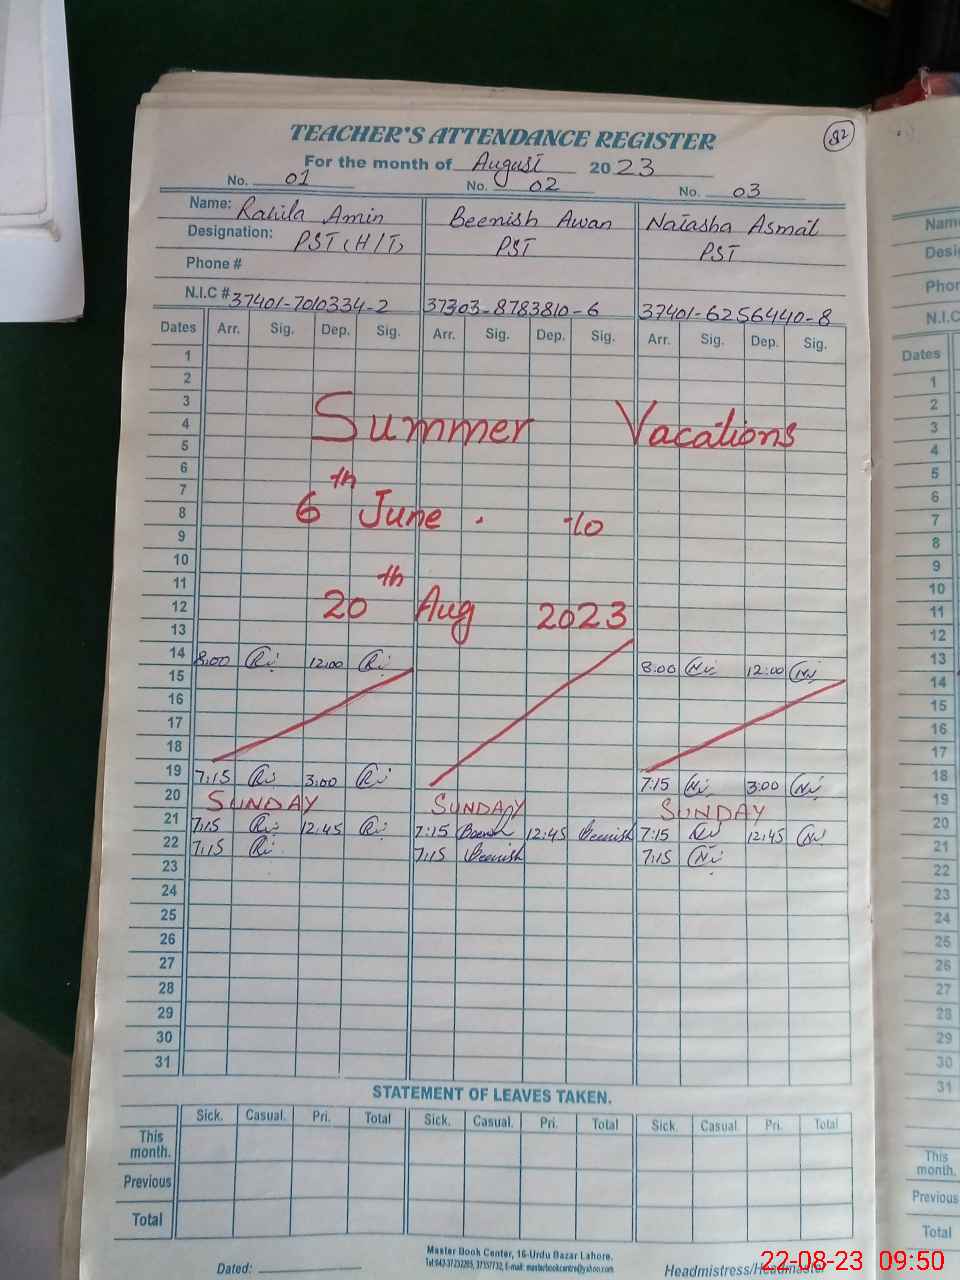 TEACHER'S ATTENDANCE REGISTER
82
For the month of August 2023
No. 01 No. 02 No. 03
Name: Rahila Amin Beenish Awan Natasha Asmat
Designation: PST (H/T) PST PST
Phone #
N.I.C # 37401-7010334-2 37303-8783810-6 37401-6256440-8
Dates Arr. Sig. Dep. Sig. Arr. Sig. Dep. Sig. Arr. Sig. Dep. Sig.
1
2
3
4 Summer Vacations
5
6
7
8 6th June. to
9
10
11
12 20th Aug 2023
13
14 8:00 12:00 8:00 12:00
15
16
17
18
19 7:15 3:00 7:15 3:00
20 SUNDAY SUNDAY SUNDAY
21 7:15 12:45 7:15 Beenish 12:45 Beenish 7:15 12:45
22 7:15 7:15 Beenish 7:15
23
24
25
26
27
28
29
30
31
STATEMENT OF LEAVES TAKEN.
Sick. Casual. Pri. Total Sick. Casual. Pri. Total Sick. Casual. Pri. Total
This month.
Previous
Total
Master Book Center, 16-Urdu Bazar Lahore.
Dated: Headmistress/Headmaster
22-08-23 09:50
Dates
1
2
3
4
5
6
7
8
9
10
11
12
13
14
15
16
17
18
19
20
21
22
23
24
25
26
27
28
29
30
31
This
month.
Previous
Total